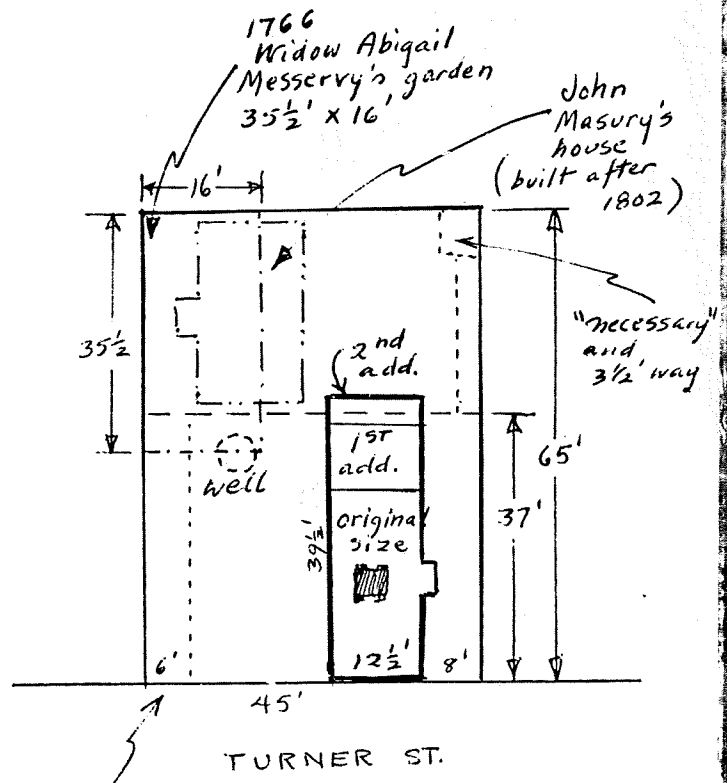 1766
Widow Abigail
Messervy's garden
35½' x 16'
John
Masury's
house
(built after
1802)
16'
35½
"necessary"
and
3½' way
2nd
add.
1ST
add.
65'
well
37'
original
size
39½'
6'
12½'
8'
45'
TURNER ST.